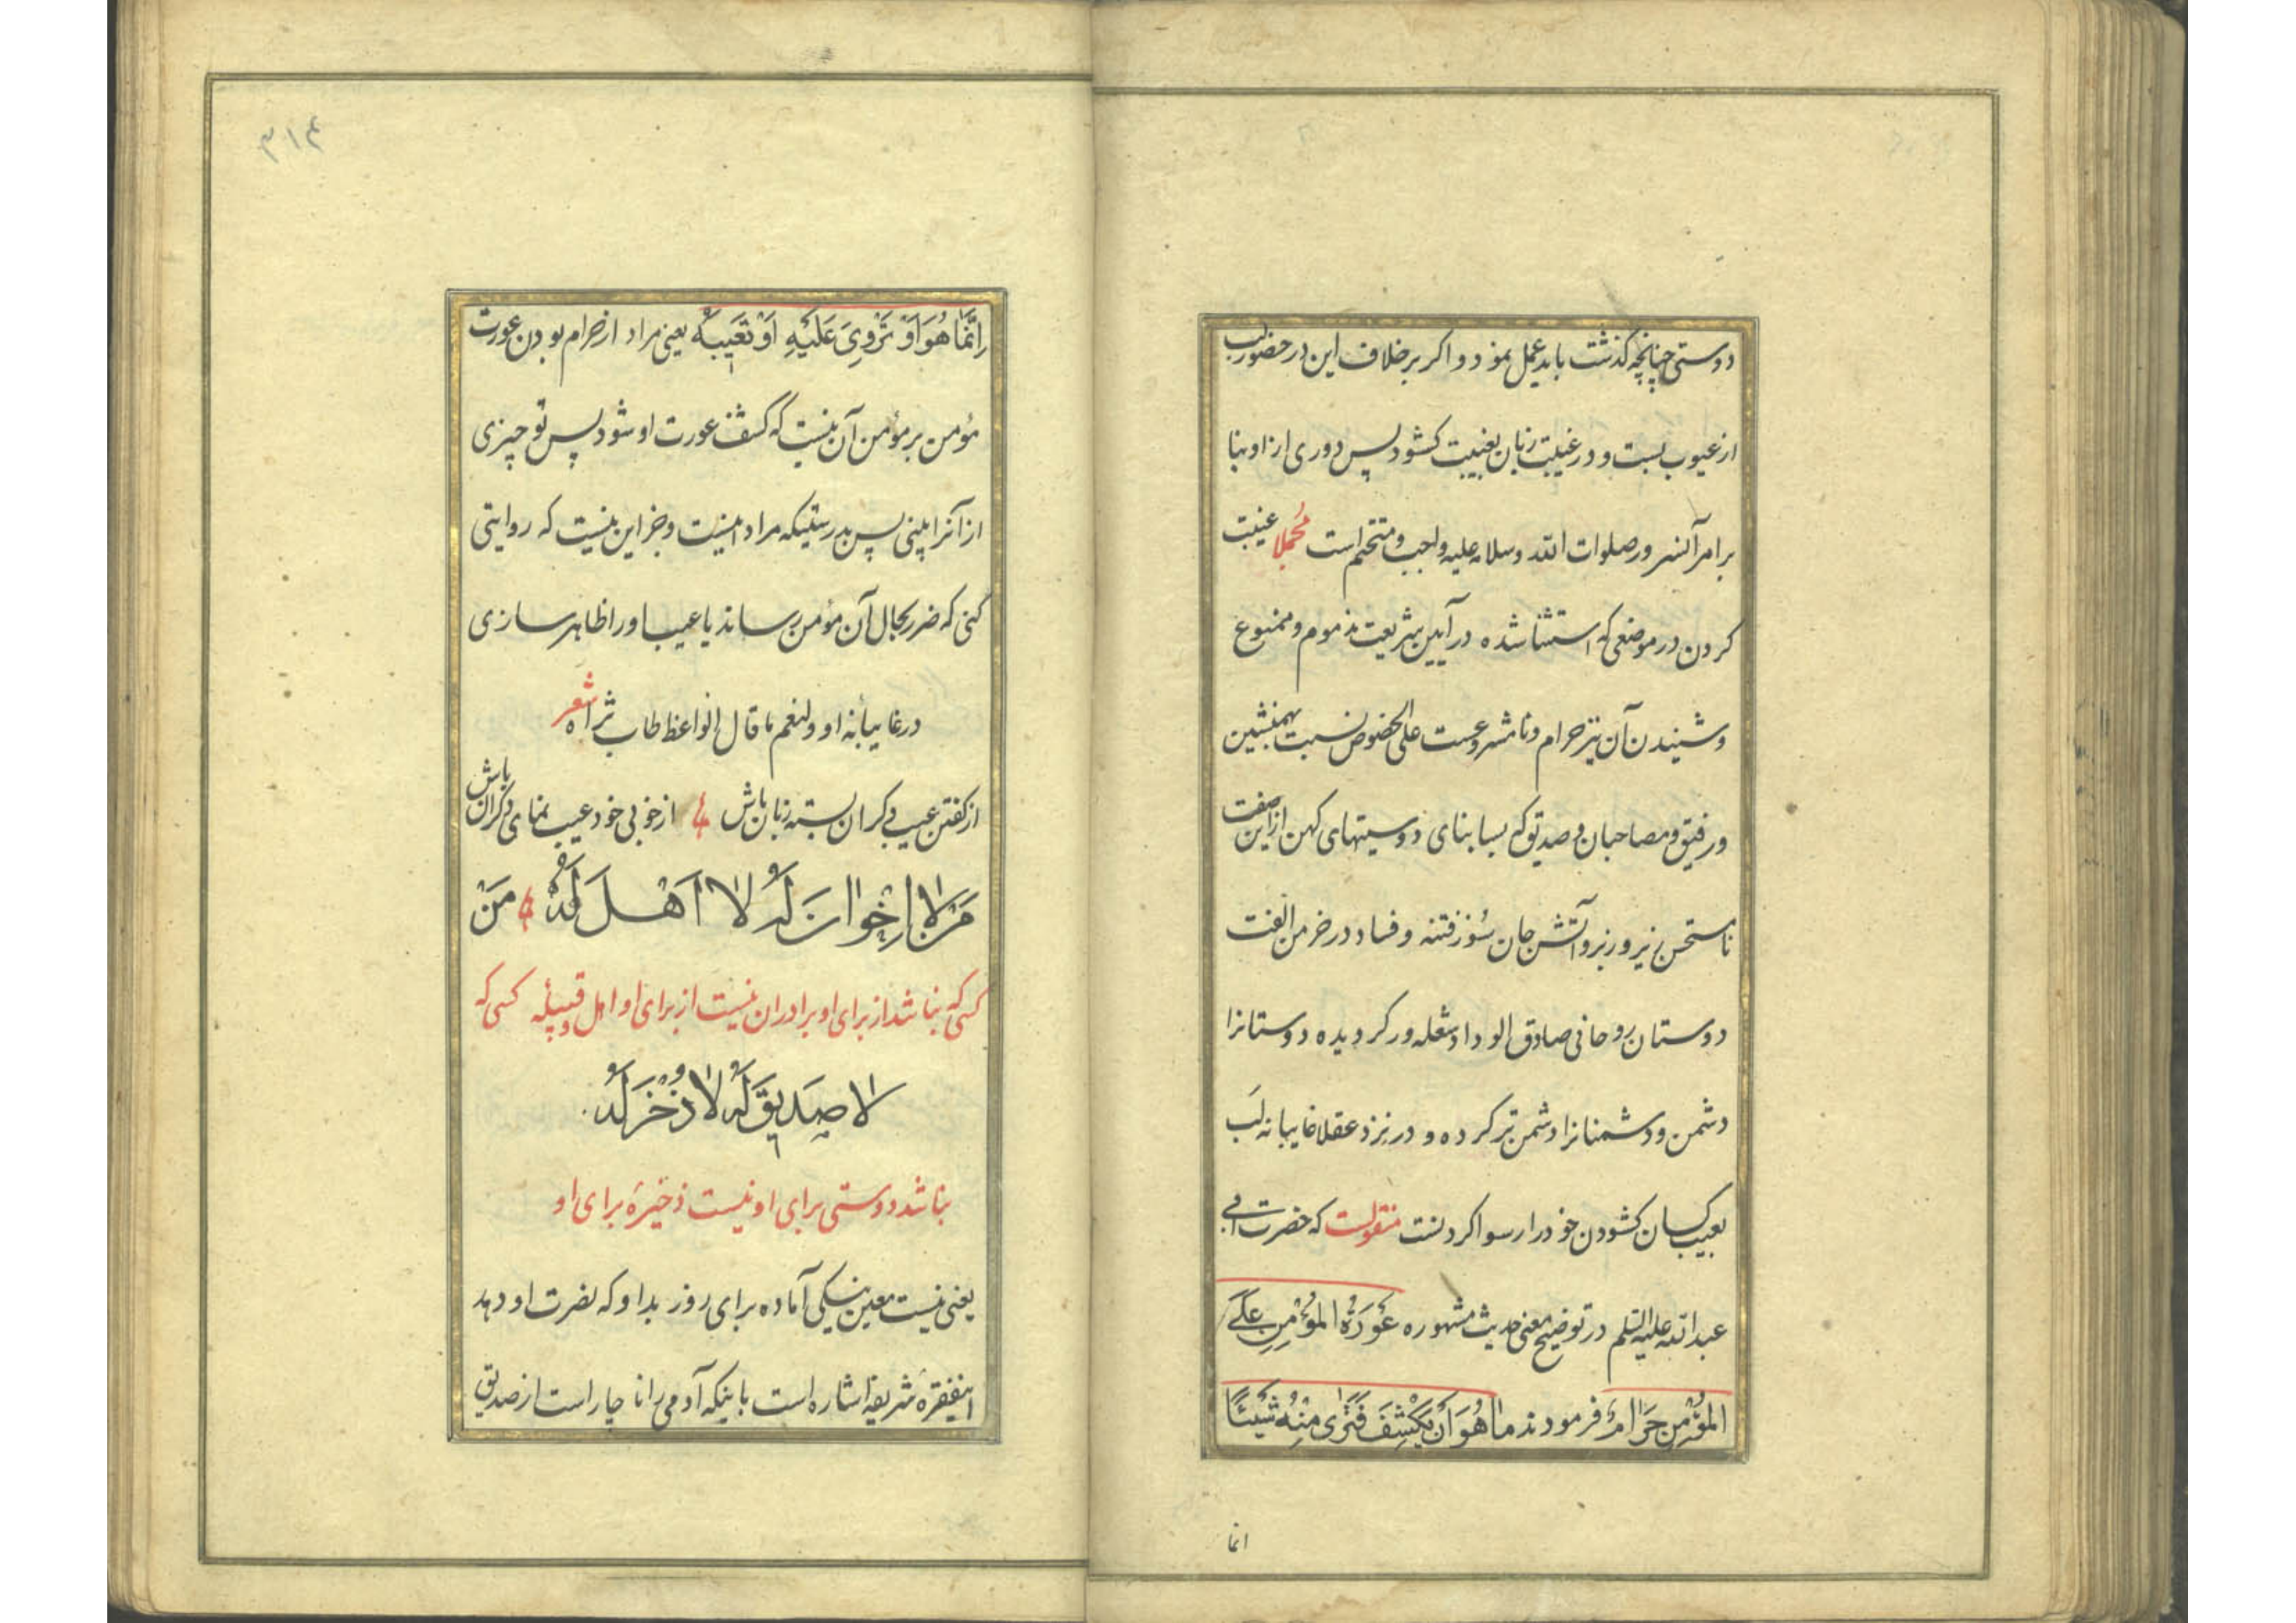 دوستی چنانچه گذشت باید عمل نمود و اگر برخلاف این در حضور لب
از عیوب بست و در غیبت زبان بغیبت گشود پس دوری از او بنا
بر امر آنسرور صلوات الله وسلامه علیه واجب و متحتم است مجملا غیبت
کردن در موضعی که استثنا شده در آیین شریعت مذموم و ممنوع
و شنیدن آن نیز حرام و نامشروعست علی الخصوص نسبت بهمنشین
و رفیق و مصاحبان و صدیق که بسا بنای دوستیهای کهن ازین صفت
نامستحسن زیر و زبر و آتش جان سوز فتنه و فساد در خرمن الفت
دوستان روحانی صادق الوداد شعله ور گردیده دوستانرا
دشمن و دشمنانرا دشمن تر کرده و در نزد عقلا غایبانه لب
بعیب کسان گشودن خود را رسوا کردنست منقولست که حضرت ابی
عبدالله علیه السلم در توضیح معنی حدیث مشهوره عَوْرَةُ المُؤْمِنِ عَلَی
المُؤْمِنِ حَرَامٌ فرمودند مَا هُوَ اَنْ یَکْشِفَ فَتَرٰی مِنْهُ شَیْئًا
انما
۳۱۴
اِنَّمَا هُوَ اَوْ تَرْوِیَ عَلَیْهِ اَوْ تَعِیبَهُ یعنی مراد از حرام بودن عورت
مؤمن بر مؤمن آن نیست که کشف عورت او شود پس تو چیزی
از آنرا بینی پس بدرستیکه مراد اینست و جز این نیست که روایتی
کنی که ضرر بحال آن مؤمن رساند یا عیب او را ظاهر سازی
در غایبانه او و لنعم ما قال الواعظ طاب ثراه شعر
از گفتن عیب دیگران بسته زبان باش از خوبی خود عیب نمای دگران باش
مَنْ لَا اِخْوَانَ لَهُ لَا اَهْلَ لَهُ مَنْ
کسی که نباشد از برای او برادران نیست از برای او اهل و قبیله کسی که
لَا صَدِیقَ لَهُ لَا ذُخْرَ لَهُ
نباشد دوستی برای او نیست ذخیرهٔ برای او
یعنی نیست معین نیکی آماده برای روز بد او که نصرت او دهد
اینفقرهٔ شریفه اشاره است باینکه آدمی را ناچار است از صدیق